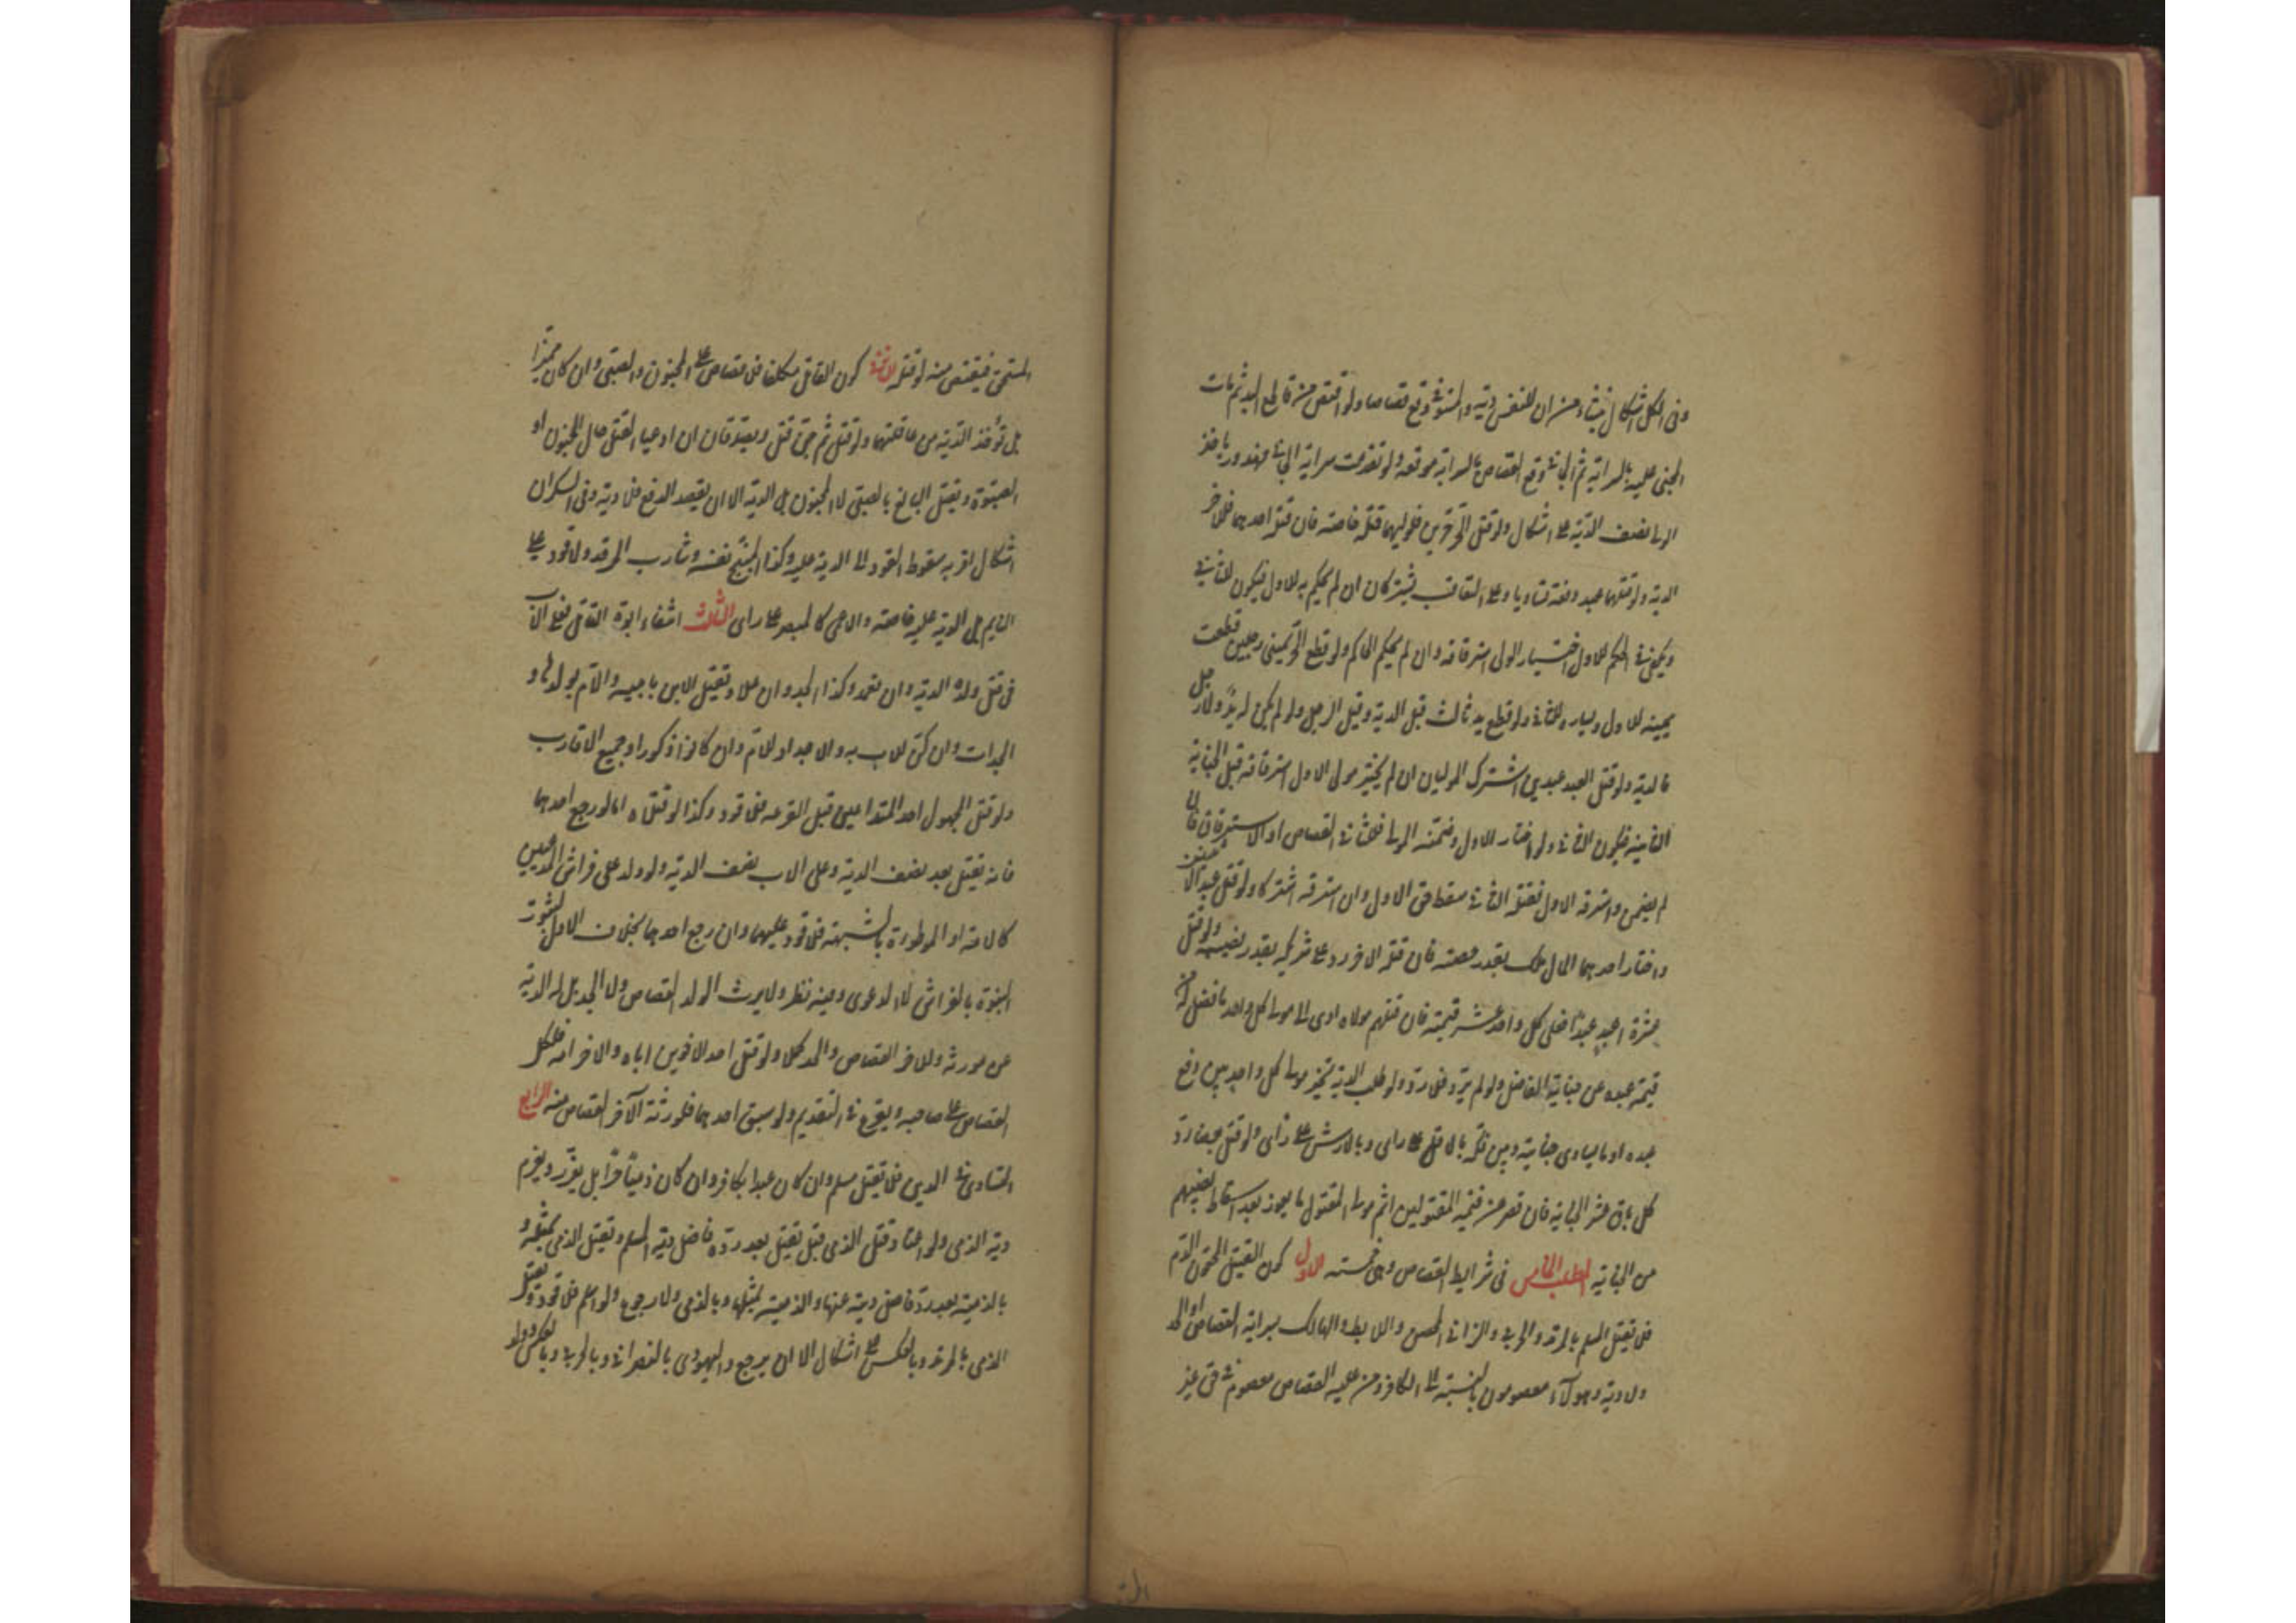 وفى الكل اشكال ينشاء من ان للنفس دية والمستوفى وقع قصاصا ولو اقتص من قاطع اليد ثم مات
المجنى عليه بالسراية ثم الجانى وقع القصاص بالسراية موقعه ولو تقدمت سراية الجانى فهدر وياخذ
الولى نصف الدية على اشكال ولو قتل الحر حرين فلوليهما قتله خاصة فان قتله احدهما فللاخر
الدية ولو قتلهما عبد دفعة تساويا وعلى التعاقب يشتركان ان لم يحكم به للاول فيكون للثانى
ويكفى فى الحكم للاول اختيار الولى استرقاقه وان لم يحكم الحاكم ولو قطع الحر يمينى رجلين قطعت
يمينه للاول ويساره للثانى ولو قطع يد ثالث قيل الدية وقيل الرجل ولو لم يكن له يد ولا رجل
فالدية ولو قتل العبد عبدين اشترك الموليان ان لم يختر مولى الاول استرقاقه قبل الجناية
الثانية فيكون للثانى ولو اختار الاول وضمنه المولى فحق الثانى القصاص او الاسترقاق فان
لم يضمن واسترقه الاول فقتله الثانى سقط حق الاول وان استرقه اشتركا ولو قتل عبدا لاثنين
واختار احدهما المال ملك بقدر حصته فان قتله الاخر رد على شريكه بقدر نصيبه ولو قتل
عشرة اعبد عبدا فعلى كل واحد عشر قيمته فان قتلهم مولاه ادى الى مولى كل واحد ما فضل من
قيمة عبده عن جنايته الفاضل ولو لم يزد فلا رد ولو طلب الدية تخير مولى كل واحد بين دفع
عبده او ما يساوى جنايته وبين فكه بالاقل على راى وبالارش على راى ولو قتل بعضا رد
كل باق عشر الجناية فان قصر عن قيمة المقتولين اتم مولى المقتول ما يعوز بعد اسقاط نصيبهم
من الجناية المطلب الخامس فى شرايط القصاص وهى خمسة الاول كون القتيل محقون الدم
فلا يقتل المسلم بالمرتد والحربى والزانى المحصن واللايط والهالك بسراية القصاص او الحد
ولا دية وهولاء معصومون بالنسبة الى الكافر ومن عليه القصاص معصوم فى حق غير
المستحق فيقتص منه لو قتله الثانى كون القاتل مكلفا فلا قصاص على المجنون والصبى وان كان مميزا
بل تؤخذ الدية من عاقلتهما ولو قتل ثم جن قتل ويصدقان ان ادعيا القتل حال الجنون او
الصبوة ويقتل البالغ بالصبى لا المجنون بل الدية الا ان يقصد الدفع فلا دية وفى السكران
اشكال اقربه سقوط القود الى الدية عليه وكذا المبنج نفسه وشارب المرقد ولا قود على
النايم بل الدية عليه خاصة والاعمى كالمبصر على راى الثالث انتفاء ابوة القاتل فعلى الاب
فى قتل ولده الدية وان تعمد وكذا الجد وان علا ويقتل الابن بابيه والام بولدها و
الجدات وان كن للاب به والاجداد للام وان كانوا ذكورا وجميع الاقارب
ولو قتل المجهول احد المتداعيين قبل القرعة فلا قود وكذا لو قتلاه اما لو رجع احدهما
فانه يقتل بعد نصف الدية وعلى الاب نصف الدية ولو ولد على فراش المدعيين
كالامة او الموطوءة بالشبهة فلا قود عليهما وان رجع احدهما بخلاف الاول لثبوت
البنوة بالفراش لا الدعوى وفيه نظر ولا يرث الولد القصاص ولا الحد بل له الدية
عن مورثه وللاخر القصاص والحد كملا ولو قتل احد الاخوين اباه والاخر امه فلكل
القصاص على صاحبه ويقرع فى التقديم ولو سبق احدهما فلورثة الاخر القصاص منه الرابع
التساوى فى الدين فلا يقتل مسلم وان كان عبدا بكافر وان كان ذميا حرا بل يعزر ويغرم
دية الذمى ولو اعتاد قتل الذمى قيل يقتل بعد رده فاضل دية المسلم ويقتل الذمى بمثله و
بالذمية بعد رد فاضل ديته عنها والذمية بمثلها وبالذمى ولا رجوع ولو اسلم فلا قود ويقتل
الذمى بالمرتد وبالعكس على اشكال الا ان يرجع واليهودى بالنصرانى وبالحربى وبالعكس وولد